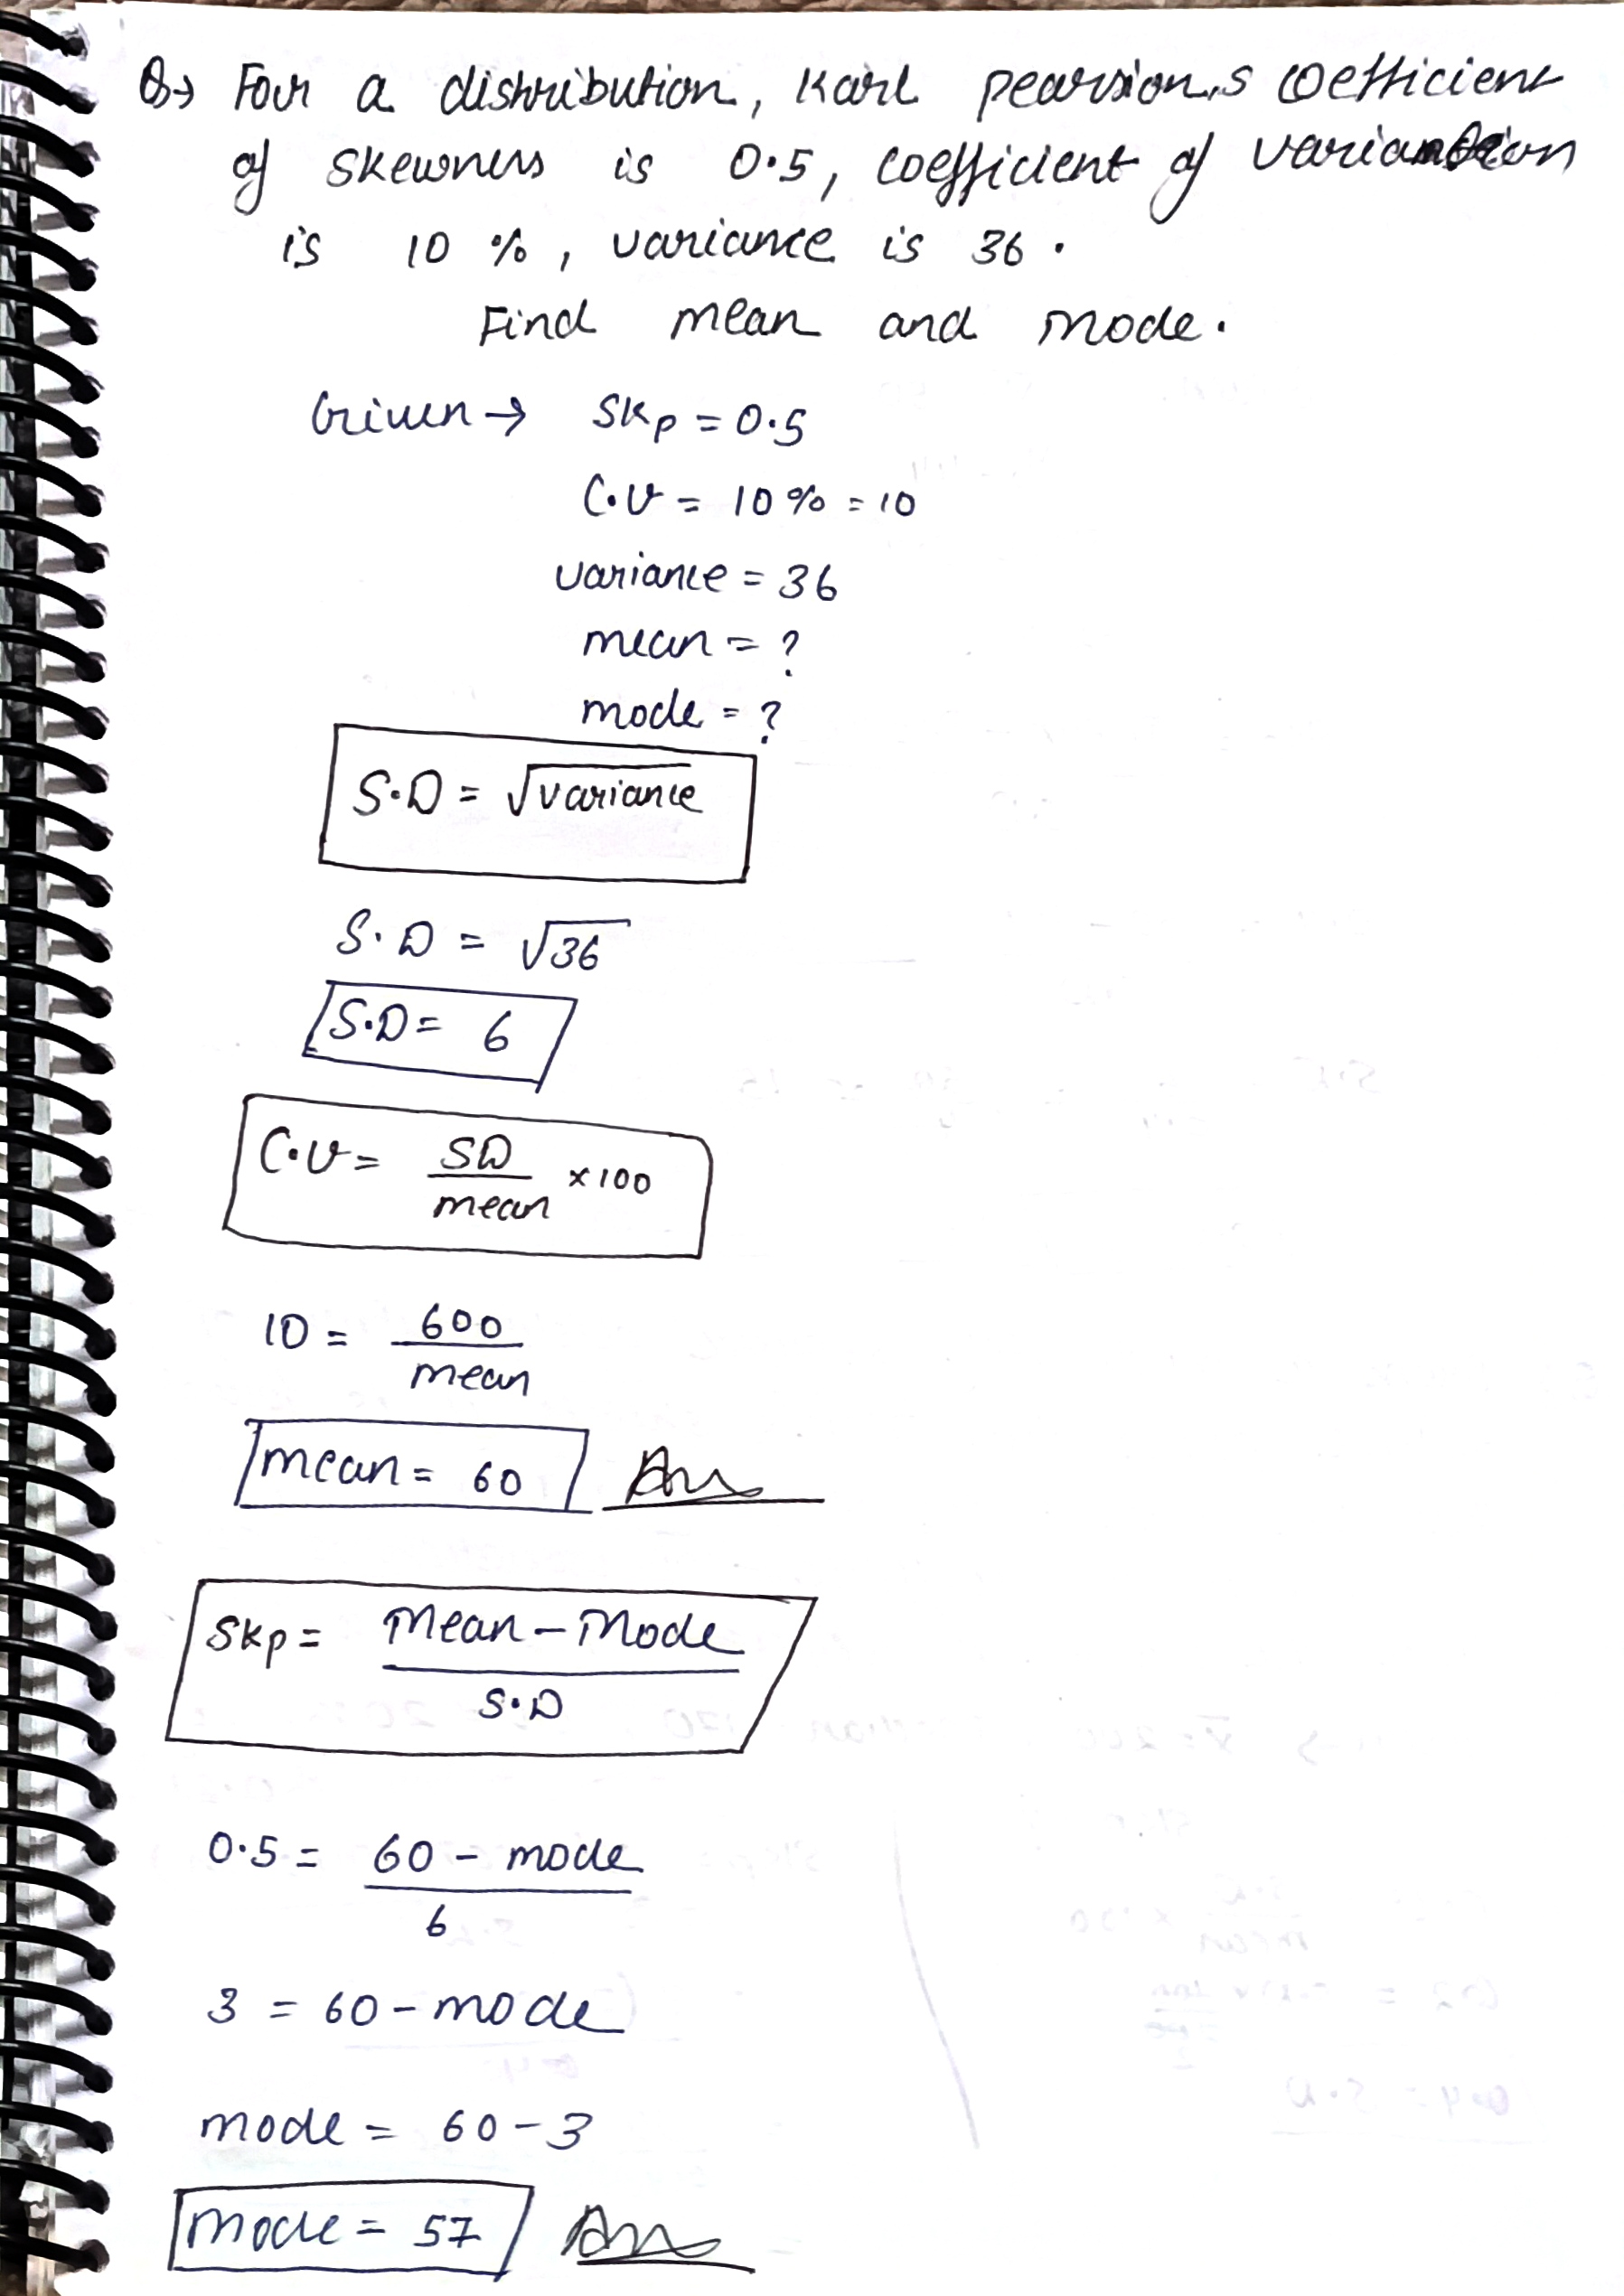 Q→ For a distribution, Karl pearsion,s coefficient
of skewness is 0.5, coefficient of variation
is 10 %, variance is 36.
Find mean and mode.
Given → SKp = 0.5
C.V = 10% = 10
variance = 36
mean = ?
mode = ?
S.D = √variance
S.D = √36
S.D = 6
C.V = SD/mean ×100
10 = 600/mean
mean = 60 Ans
SKp = Mean - Mode/S.D
0.5 = 60 - mode/6
3 = 60 - mode
mode = 60 - 3
mode = 57 Ans